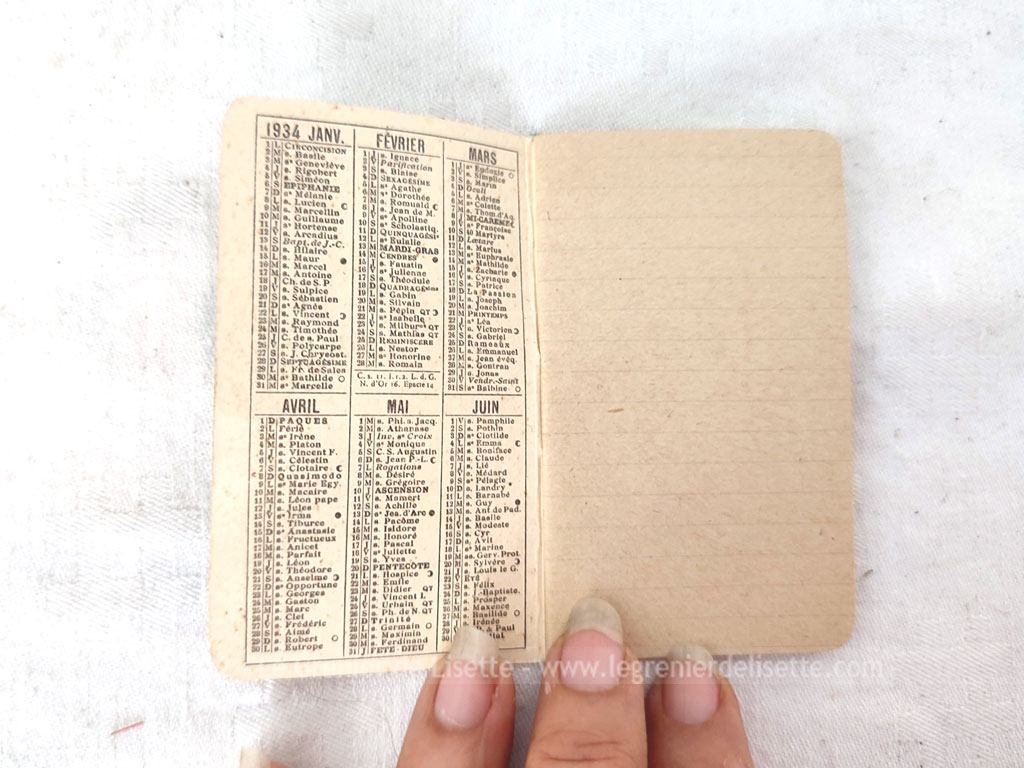 1934 JANV.
1 L CIRCONCISION
2 M s. Basile
3 M sᵉ Geneviève
4 J s. Rigobert
5 V s. Siméon
6 S EPIPHANIE
7 D sᵉ Mélanie
8 L s. Lucien ☾
9 M s. Marcellin
10 M s. Guillaume
11 J sᵉ Hortense
12 V s. Arcadius
13 S Bapt. de J.-C.
14 D s. Hilaire
15 L s. Maur ●
16 M s. Marcel
17 M s. Antoine
18 J Ch. de S. P.
19 V s. Sulpice
20 S s. Sébastien
21 D sᵉ Agnès
22 L s. Vincent ☽
23 M s. Raymond
24 M s. Timothée
25 J C. de s. Paul
26 V s. Polycarpe
27 S s. J. Chrysost.
28 D SEPTUAGÉSIME
29 L s. Fr. de Sales
30 M sᵉ Bathilde ○
31 M sᵉ Marcelle
FÉVRIER
1 J s. Ignace
2 V Purification
3 S s. Blaise
4 D SEXAGÉSIME
5 L sᵉ Agathe
6 M sᵉ Dorothée
7 M s. Romuald ☾
8 J s. Jean de M.
9 V sᵉ Apolline
10 S sᵉ Scholastiq.
11 D QUINQUAGÉSI
12 L sᵉ Eulalie
13 M MARDI-GRAS
14 M CENDRES ●
15 J s. Faustin
16 V sᵉ Julienne
17 S s. Théodule
18 D QUADRAGÉSIME
19 L s. Gabin
20 M s. Silvain
21 M s. Pépin QT ☽
22 J sᵉ Isabelle
23 V s. Milburᵉ QT
24 S s. Mathias QT
25 D REMINISCERE
26 L s. Nestor
27 M sᵉ Honorine
28 M s. Romain
C. s. 11. i. r. 2. L. d. G.
N. d'Or 16. Epacte 14
MARS
1 J sᵉ Eudoxie ○
2 V s. Simplice
3 S s. Marin
4 D Oculi
5 L s. Adrien
6 M sᵉ Colette
7 M s. Thom. d'Aq.
8 J MI-CARÊME ☾
9 V sᵉ Françoise
10 S 40 Martyrs
11 D Lætare
12 L s. Marius
13 M sᵉ Euphrasie
14 M sᵉ Mathilde
15 J s. Zacharie ●
16 V s. Cyriaque
17 S s. Patrice
18 D La Passion
19 L s. Joseph
20 M s. Joachim
21 M PRINTEMPS
22 J sᵉ Léa
23 V s. Victorien ☽
24 S s. Gabriel
25 D Rameaux
26 L s. Emmanuel
27 M s. Jean évêq.
28 M s. Gontran
29 J s. Jonas
30 V Vendr.-Saint
31 S sᵉ Balbine ○
AVRIL
1 D PAQUES
2 L Férié
3 M sᵉ Irène
4 M s. Platon
5 J s. Vincent F.
6 V s. Célestin
7 S s. Clotaire ☾
8 D Quasimodo
9 L sᵉ Marie Egy.
10 M s. Macaire
11 M s. Léon pape
12 J s. Jules
13 V sᵉ Irma ●
14 S s. Tiburce
15 D sᵉ Anastasie
16 L s. Fructueux
17 M s. Anicet
18 M s. Parfait
19 J s. Léon
20 V s. Théodore
21 S s. Anselme ☽
22 D sᵉ Opportune
23 L s. Georges
24 M s. Gaston
25 M s. Marc
26 J s. Clet
27 V s. Frédéric
28 S s. Aimé
29 D s. Robert ○
30 L s. Eutrope
MAI
1 M s. Phi. s. Jacq.
2 M s. Athanase
3 J Inv. sᵉ Croix
4 V sᵉ Monique
5 S C. S. Augustin
6 D s. Jean P.-L. ☾
7 L Rogations
8 M s. Désiré
9 M s. Grégoire
10 J ASCENSION
11 V s. Mamert
12 S s. Achille
13 D sᵉ Jea. d'Arc ●
14 L s. Pacôme
15 M s. Isidore
16 M s. Honoré
17 J s. Pascal
18 V sᵉ Juliette
19 S s. Yves
20 D PENTECÔTE
21 L s. Hospice ☽
22 M s. Emile
23 M s. Didier QT
24 J s. Vincent L
25 V s. Urbain QT
26 S s. Ph. de N. QT
27 D Trinité
28 L s. Germain ○
29 M s. Maximin
30 M s. Ferdinand
31 J FETE-DIEU
JUIN
1 V s. Pamphile
2 S s. Pothin
3 D sᵉ Clotilde
4 L sᵉ Emma ☾
5 M s. Boniface
6 M s. Claude
7 J s. Lié
8 V s. Médard
9 S sᵉ Pélagie
10 D s. Landry
11 L s. Barnabé
12 M s. Guy ●
13 M s. Ant de Pad.
14 J s. Basile
15 V s. Modeste
16 S s. Cyr
17 D s. Avit
18 L sᵉ Marine
19 M ss. Gerv. Prot.
20 M s. Sylvère ☽
21 J s. Louis le G.
22 V Eté
23 S s. Félix
24 D s. J.-Baptiste.
25 L s. Prosper
26 M s. Maxence
27 M sᵉ Basilide ○
28 J s. Irénée
29 & Paul
Lisette - www.legrenierdelisette.com